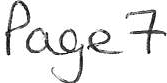 Page 7